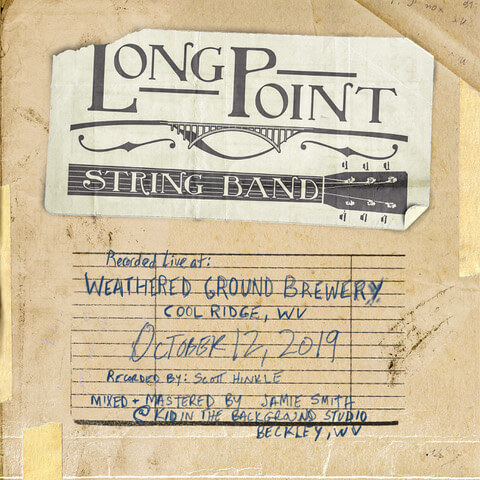 LONG POINT
STRING BAND
Recorded Live at:
WEATHERED GROUND BREWERY
COOL RIDGE, WV
OCTOBER 12, 2019
RECORDED BY: SCOTT HINKLE
MIXED + MASTERED BY JAMIE SMITH
@ KID IN THE BACKGROUND STUDIO
BECKLEY, WV